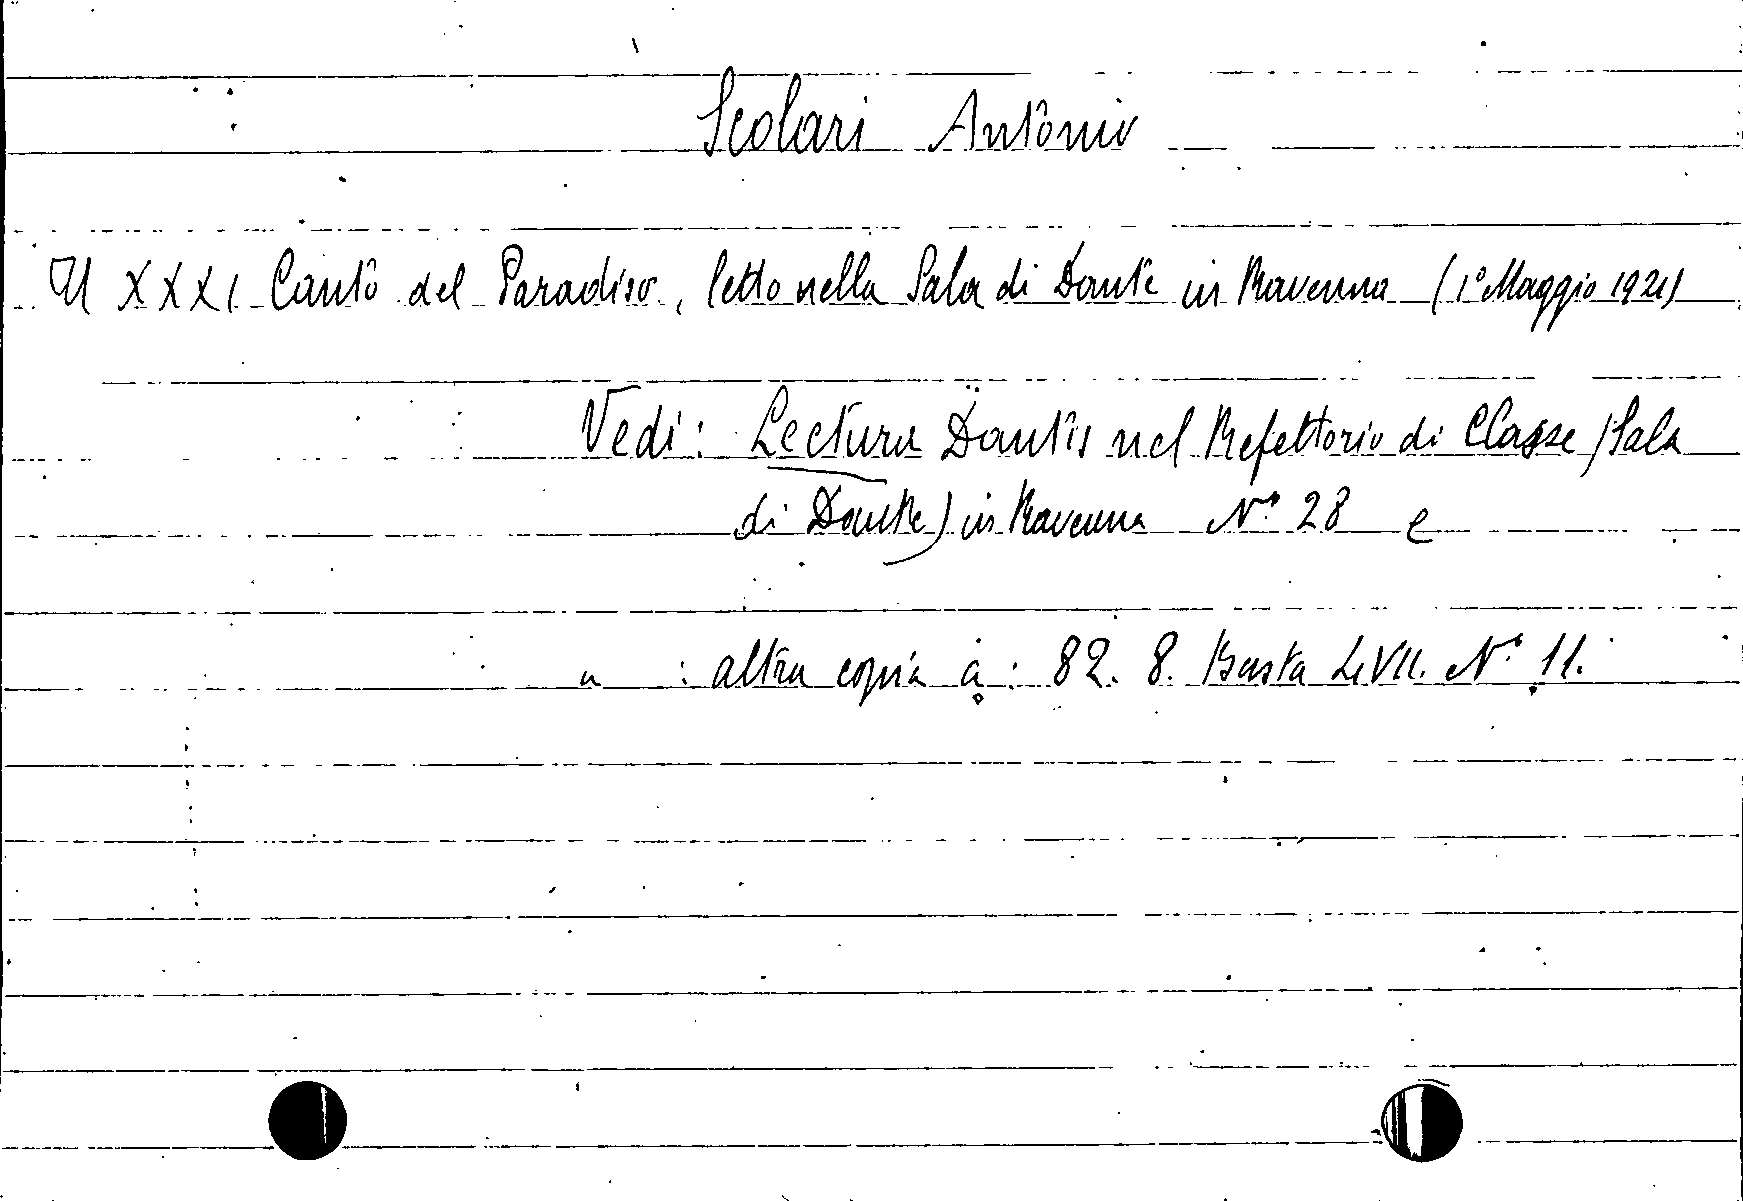 Scolari Antonio
Il XXXI Canto del Paradiso, letto nella Sala di Dante in Ravenna (1º Maggio 1921)
Vedi: Lectura Dantis nel Refettorio di Classe (Sala
di Dante) in Ravenna Nº 28 e
" : altra copia a: 82. 8. Busta LVII. Nº 11.